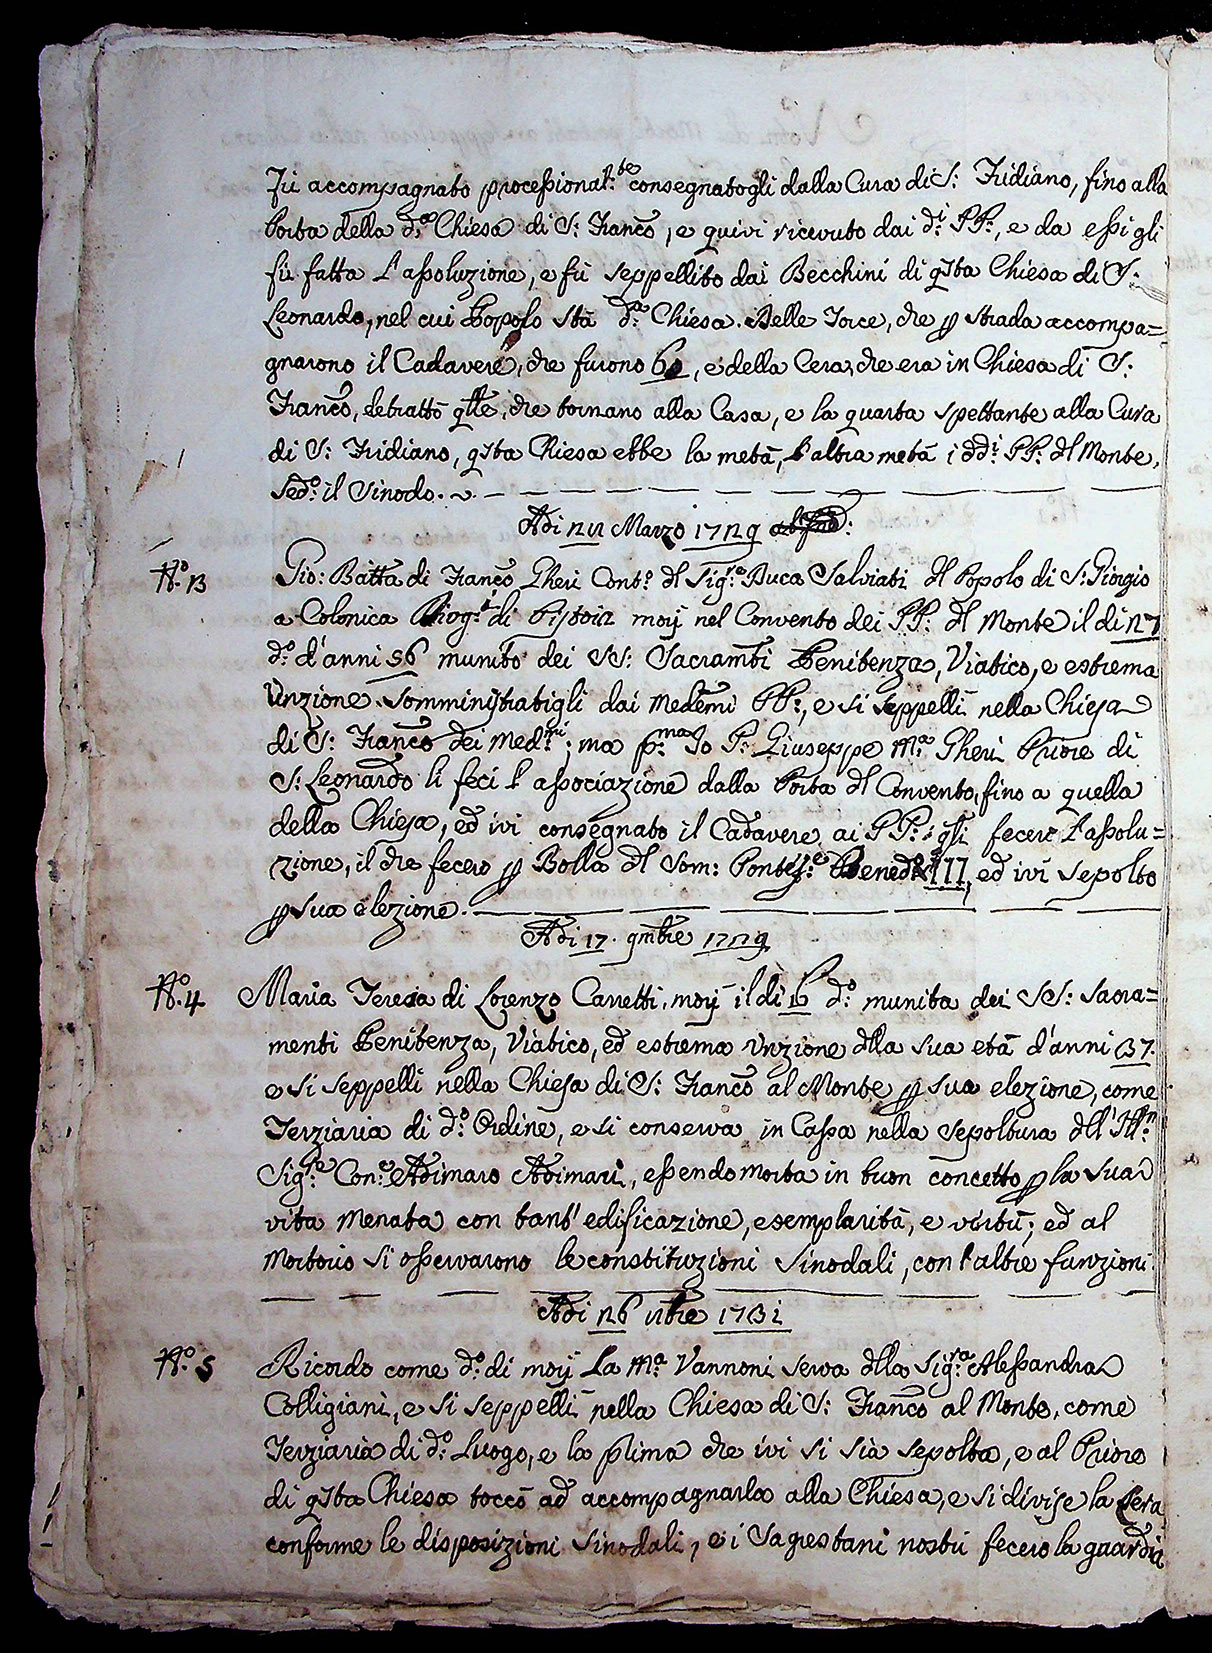 Fù accompagnato processional:te consegnatogli dalla Cura di S: Fridiano, fino alla
Porta della d:a Chiesa di S: Franc̃o, e quivi ricevuto dai d:i PP:, e da essi gli
fù fatta l'assoluzione, e fù seppellito dai Becchini di q̃sta Chiesa di S:
Leonardo, nel cui Popolo stà d:a Chiesa. Delle Torce, che p strada accompa=
gnarono il Cadavere, che furono 60, e della Cera, che era in Chiesa di S:
Franc̃o, detratto q̃lle, che tornano alla Casa, e la quarta spettante alla Cura
di S: Fridiano, q̃sta Chiesa ebbe la metà, l'altra metà i dd:i PP: dl Monte,
Sed:o il Sinodo.
Adi 22 Marzo 1729
N:o 3 Gio: Batta di Franc̃o Gheri Cont:o dl Sig:re Duca Salviati dl Popolo di S: Giorgio
a Colonica di Pistoia morì nel Convento dei PP: dl Monte il di 27
d:o d'anni 56 munito dei SS: Sacram̃ti Penitenza, Viatico, e estrema
Unzione somministratigli dai Medem̃i PP:, e si seppellì nella Chiesa
di S: Franc̃o dei Med:mi; ma p:ma Io P: Giuseppe M:a Gheri Priore di
S: Leonardo li feci l'associazione dalla Porta dl Convento, fino a quella
della Chiesa, ed ivi consegnato il Cadavere ai PP: i q̃li fecero l'assolu=
zione, il che fecero p Bolla dl Som: Pontef:e Bened:o XIII, ed ivi sepolto
p sua elezione.
Adi 17. 9mbre 1729
N:o 4 Maria Teresia di Lorenzo Carretti, morì il dì 16 d:o munita dei SS: Sacra=
menti Penitenza, Viatico, ed estrema Unzione dlla sua età d'anni 37.
e si seppellì nella Chiesa di S: Franc̃o al Monte p sua elezione, come
Terziaria di d:o Ordine, e si conserva in Cassa nella sepoltura dll'Ill:mo
Sig:re Con:e Adimaro Adimari, essendo morta in buon concetto p la sua
vita menata con tant'edificazione, esemplarità, e virtù; ed al
Mortorio si osservarono le constituzioni sinodali, con l'altre funzioni.
Adi 26 1731
N:o 5 Ricordo come d:o di morì La M:a Vannoni serva dlla Sig:ra Alessandra
Colligiani, e si seppellì nella Chiesa di S: Franc̃o al Monte, come
Terziaria di d:o Luogo, e la prima che ivi si sià sepolta, e al Priore
di q̃sta Chiesa toccò ad accompagnarla alla Chiesa, e si divise la Cera
conforme le disposizioni Sinodali, e i Sagrestani nostri fecero la guardia